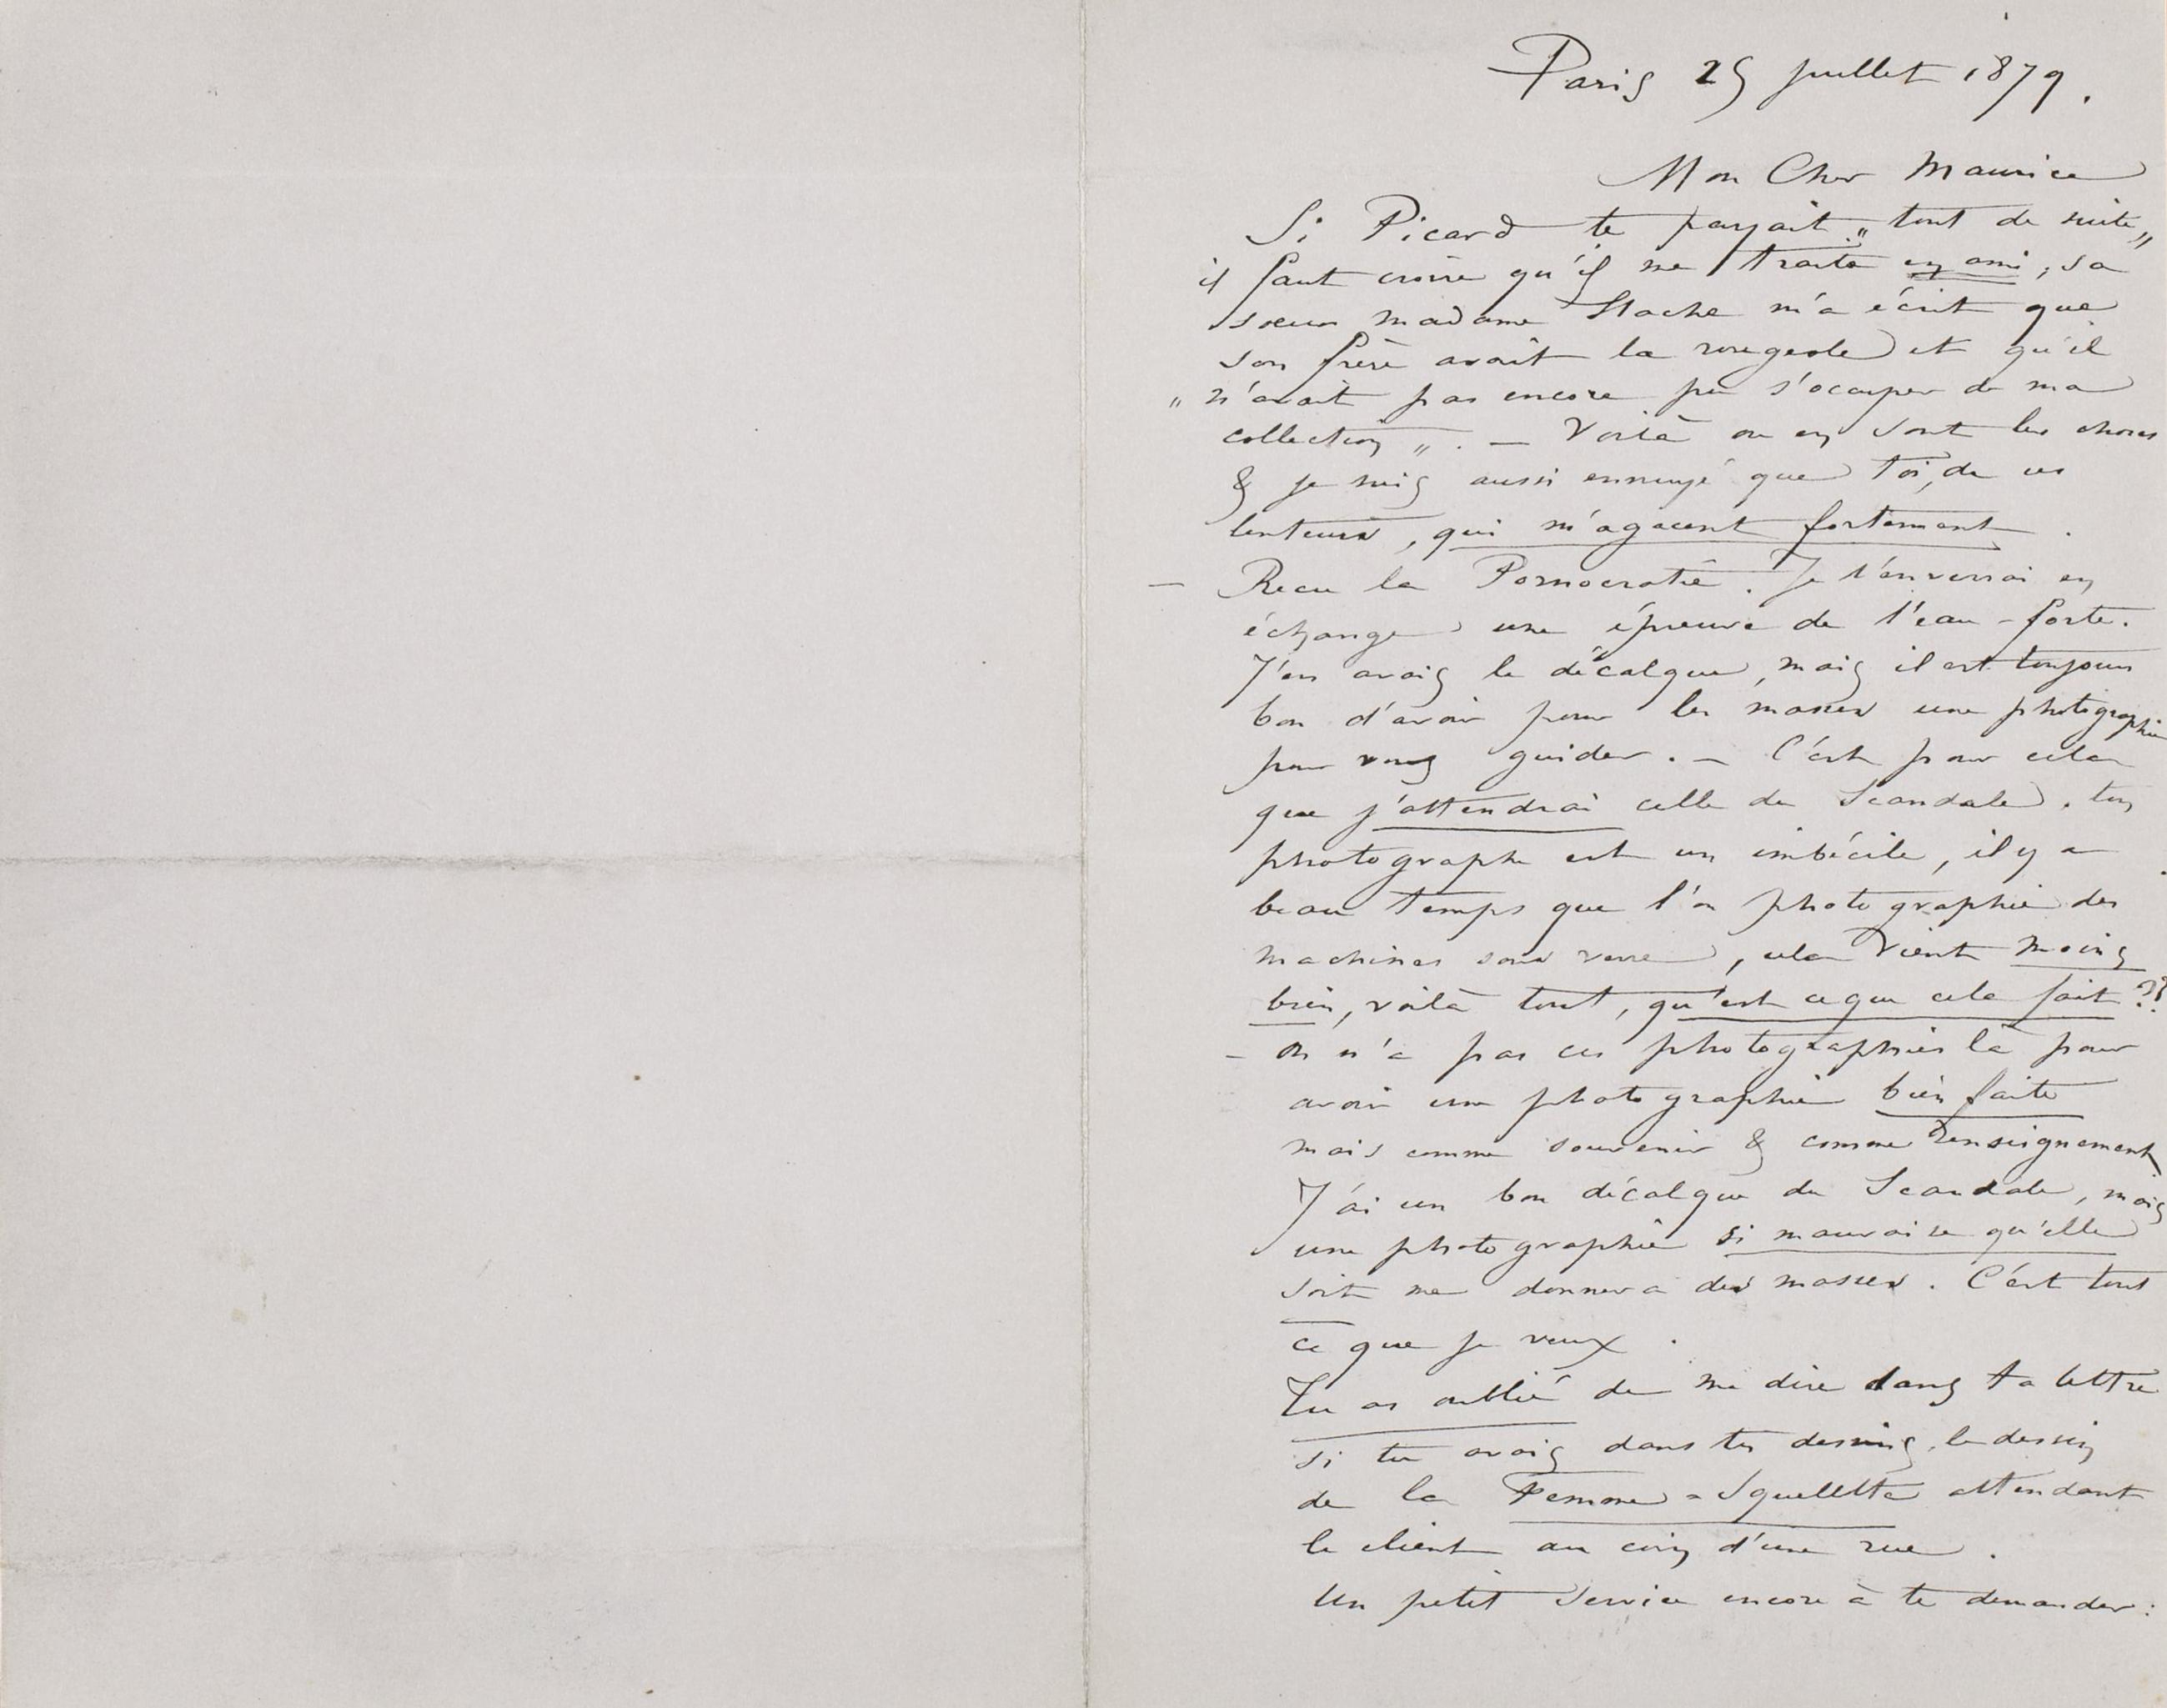 Paris 25 juillet 1879.
Mon Cher Maurice
Si Picard te payait „tout de suite„
il faut croire qu'il me traite en ami, sa
soeur madame Stache m'a écrit que
son frère avait la rougeole et qu'il
„n'avait pas encore pu s'occuper de ma
collection„. — Voilà ou en sont les choses
& je suis aussi ennuyé que toi, de ces
lenteurs, qui m'agacent fortement.
— Recu la Pornocratie. Je t'enverrai en
échange une épreuve de l'eau-forte.
J'en avais le décalque, mais il est toujours
bon d'avoir pour les masses une photographie
pour vous guider. — C'est pour cela
que j'attendrai celle du Scandale. ton
photographe est un imbécile, il y a
beau temps que l'on photographie des
machines sous verre, cela vient moins
bien, voilà tout, qu'est ce que cela fait ??
— On n'a pas ces photographies là pour
avoir une photographie bien faite
mais comme souvenir & comme renseignement
J'ai un bon décalque du Scandale, mais
une photographie si mauvaise qu'elle
soit me donnera des masses. C'est tout
ce que je veux.
Tu as oublié de me dire dans ta lettre
si tu avais dans tes dessins, le dessin
de la Femme-Squelette attendant
le client au coin d'une rue.
Un petit service encore à te demander: